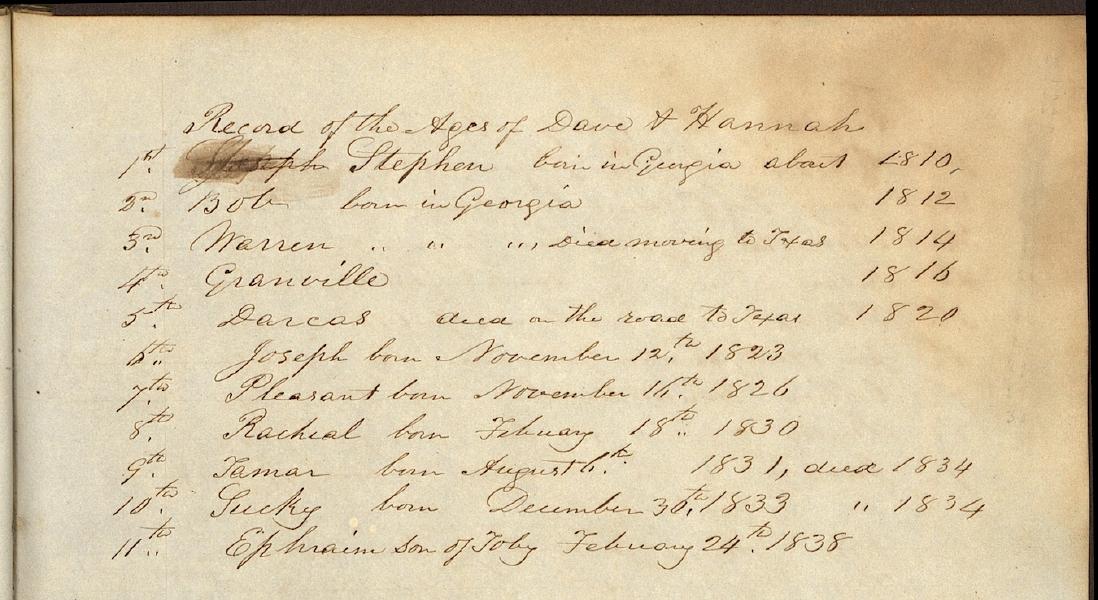 Record of the Ages of Dave & Hannah
1st. Joseph Stephen born in Georgia about 1810,
2n. Bob born in Georgia 1812
3rd. Warren " " ", Died moving to Texas 1814
4th. Granville 1816
5th. Darcas died on the road to Texas 1820
6th. Joseph born November 12th. 1823
7th. Pleasant born November 16th. 1826
8th. Racheal born Febuary 18th. 1830
9th. Tamar born August 6th. 1831, died 1834
10th. Sucky born December 30th. 1833 " 1834
11th. Ephraim son of Toby February 24th. 1838